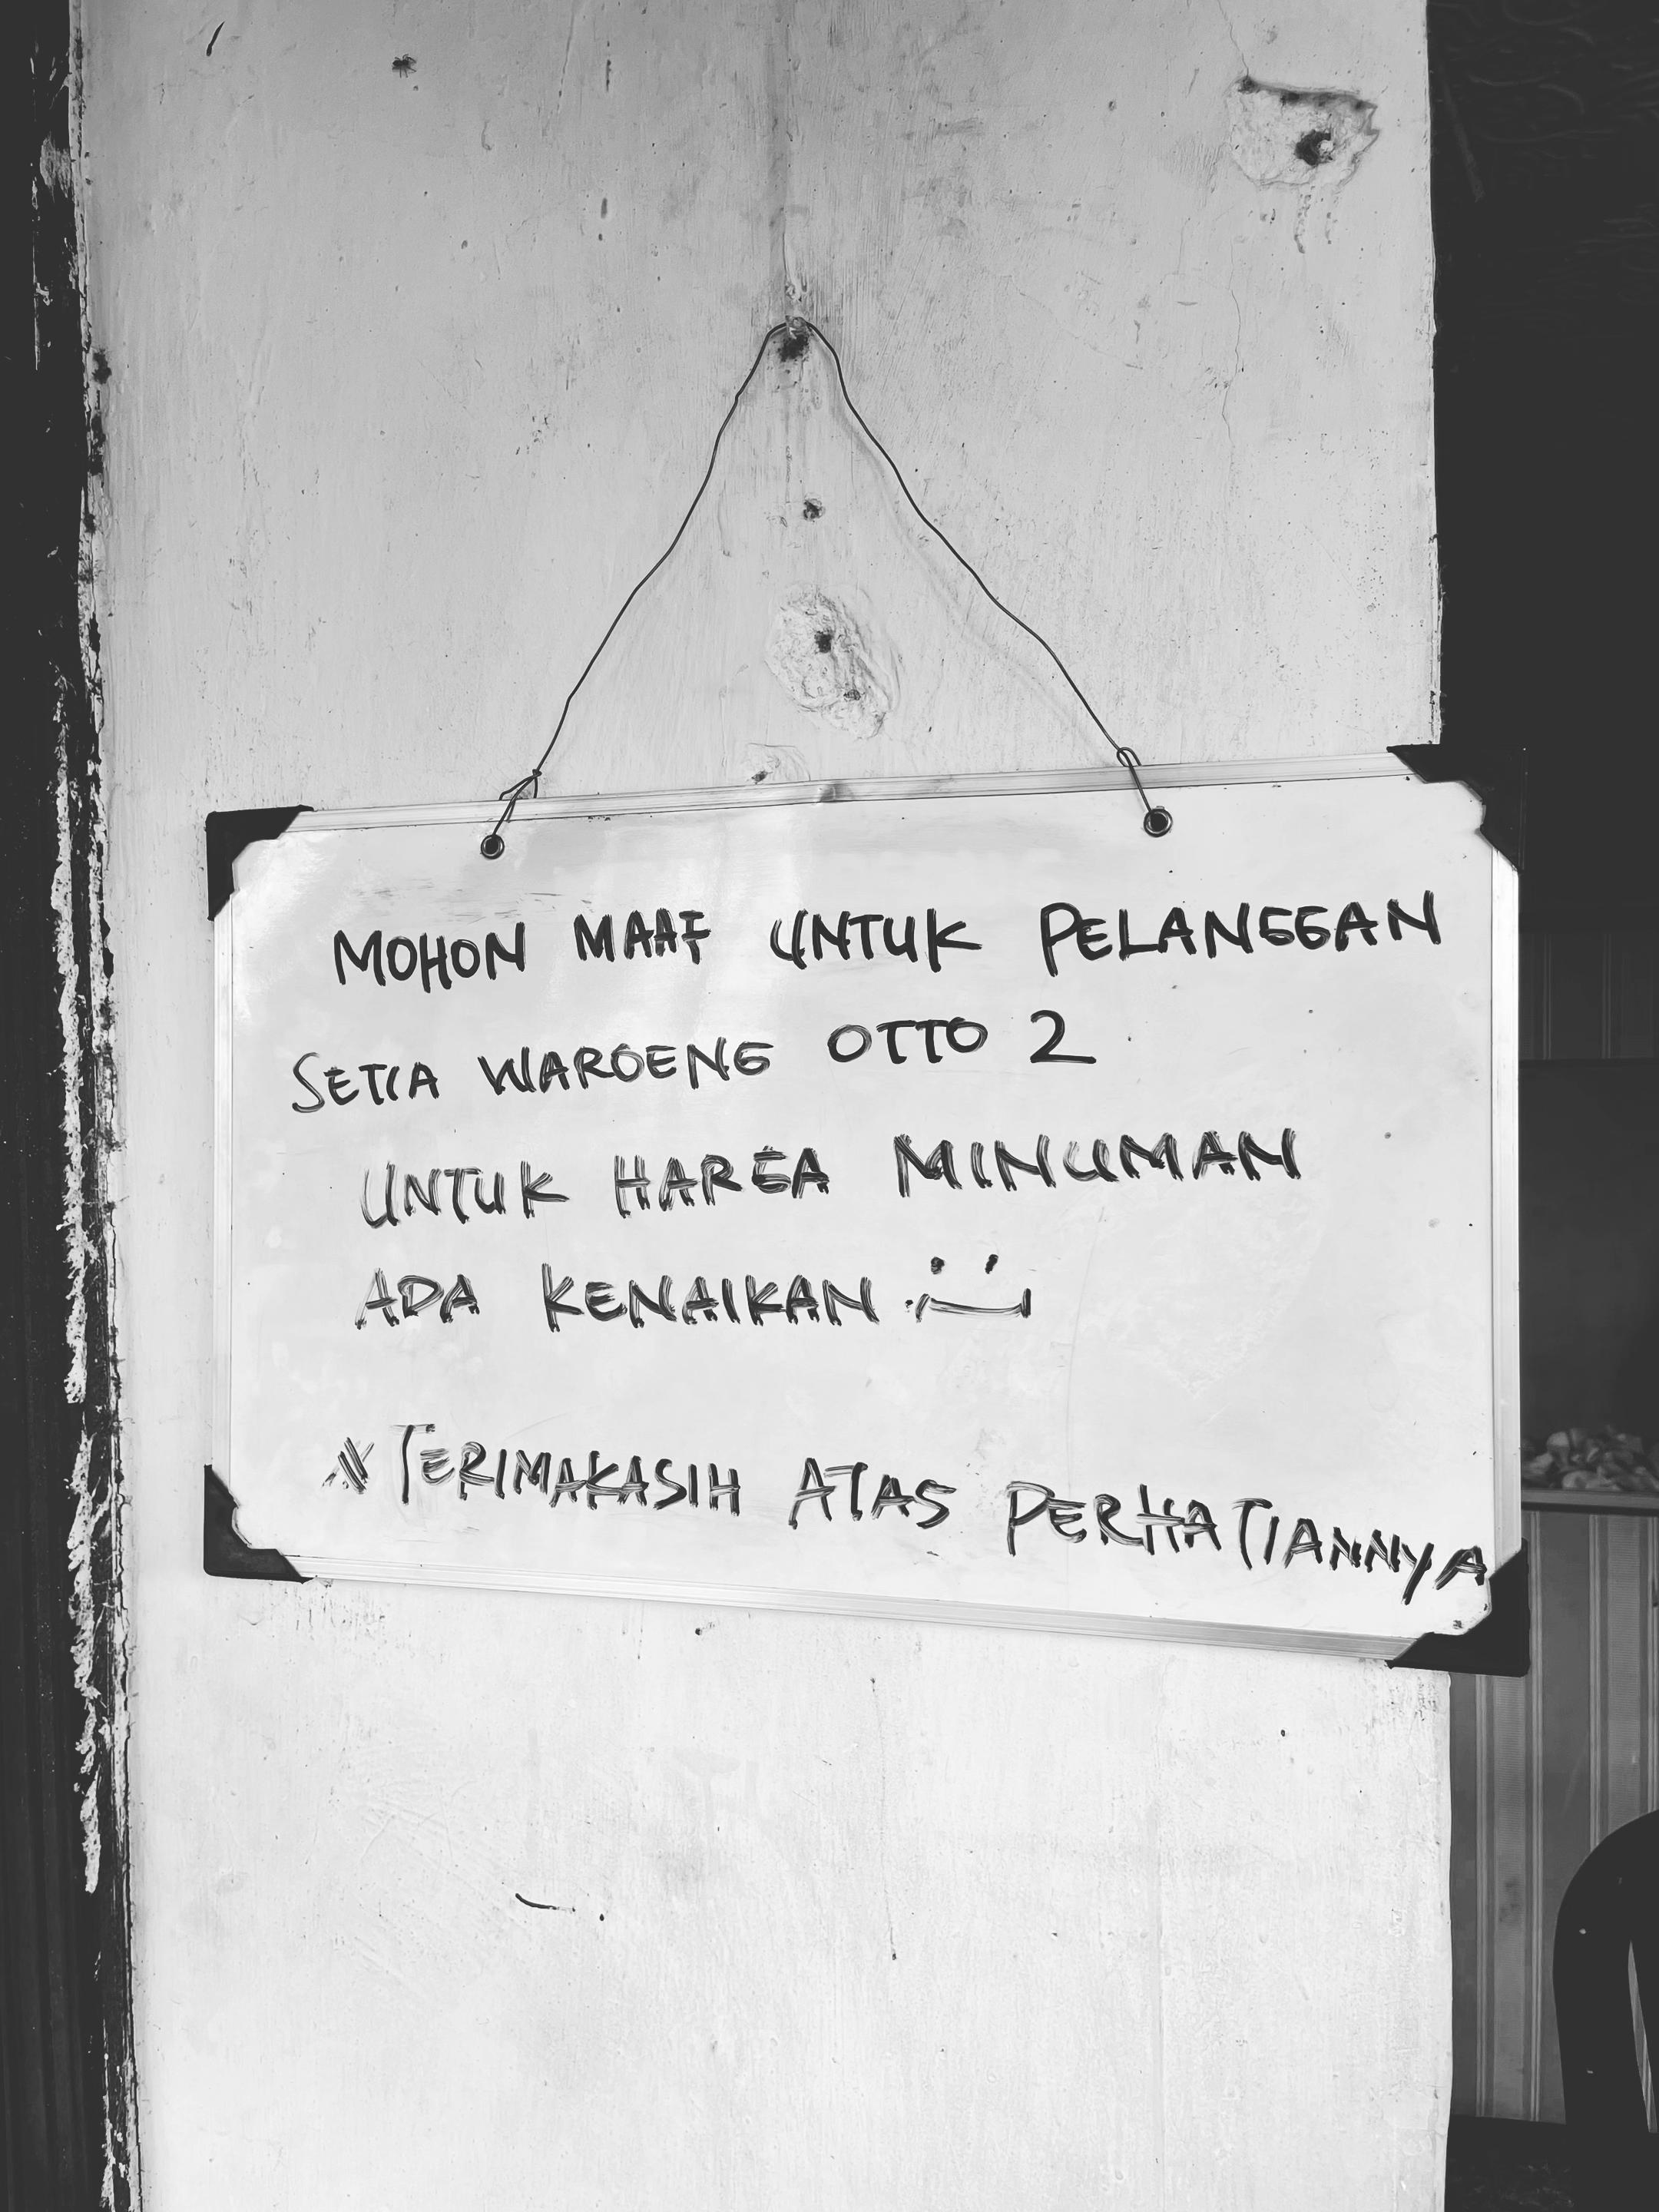 MOHON MAAF UNTUK PELANGGAN
SETIA WAROENG OTTO 2
UNTUK HARGA MINUMAN
ADA KENAIKAN
* TERIMAKASIH ATAS PERHATIANNYA